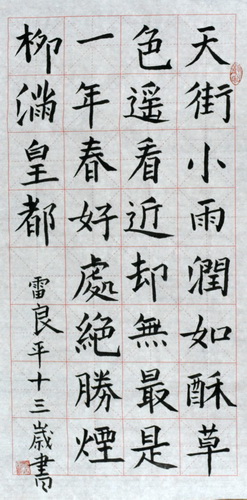 天街小雨潤如酥草
色遥看近却無最是
一年春好處絶勝煙
柳滿皇都
雷良平十三歲書